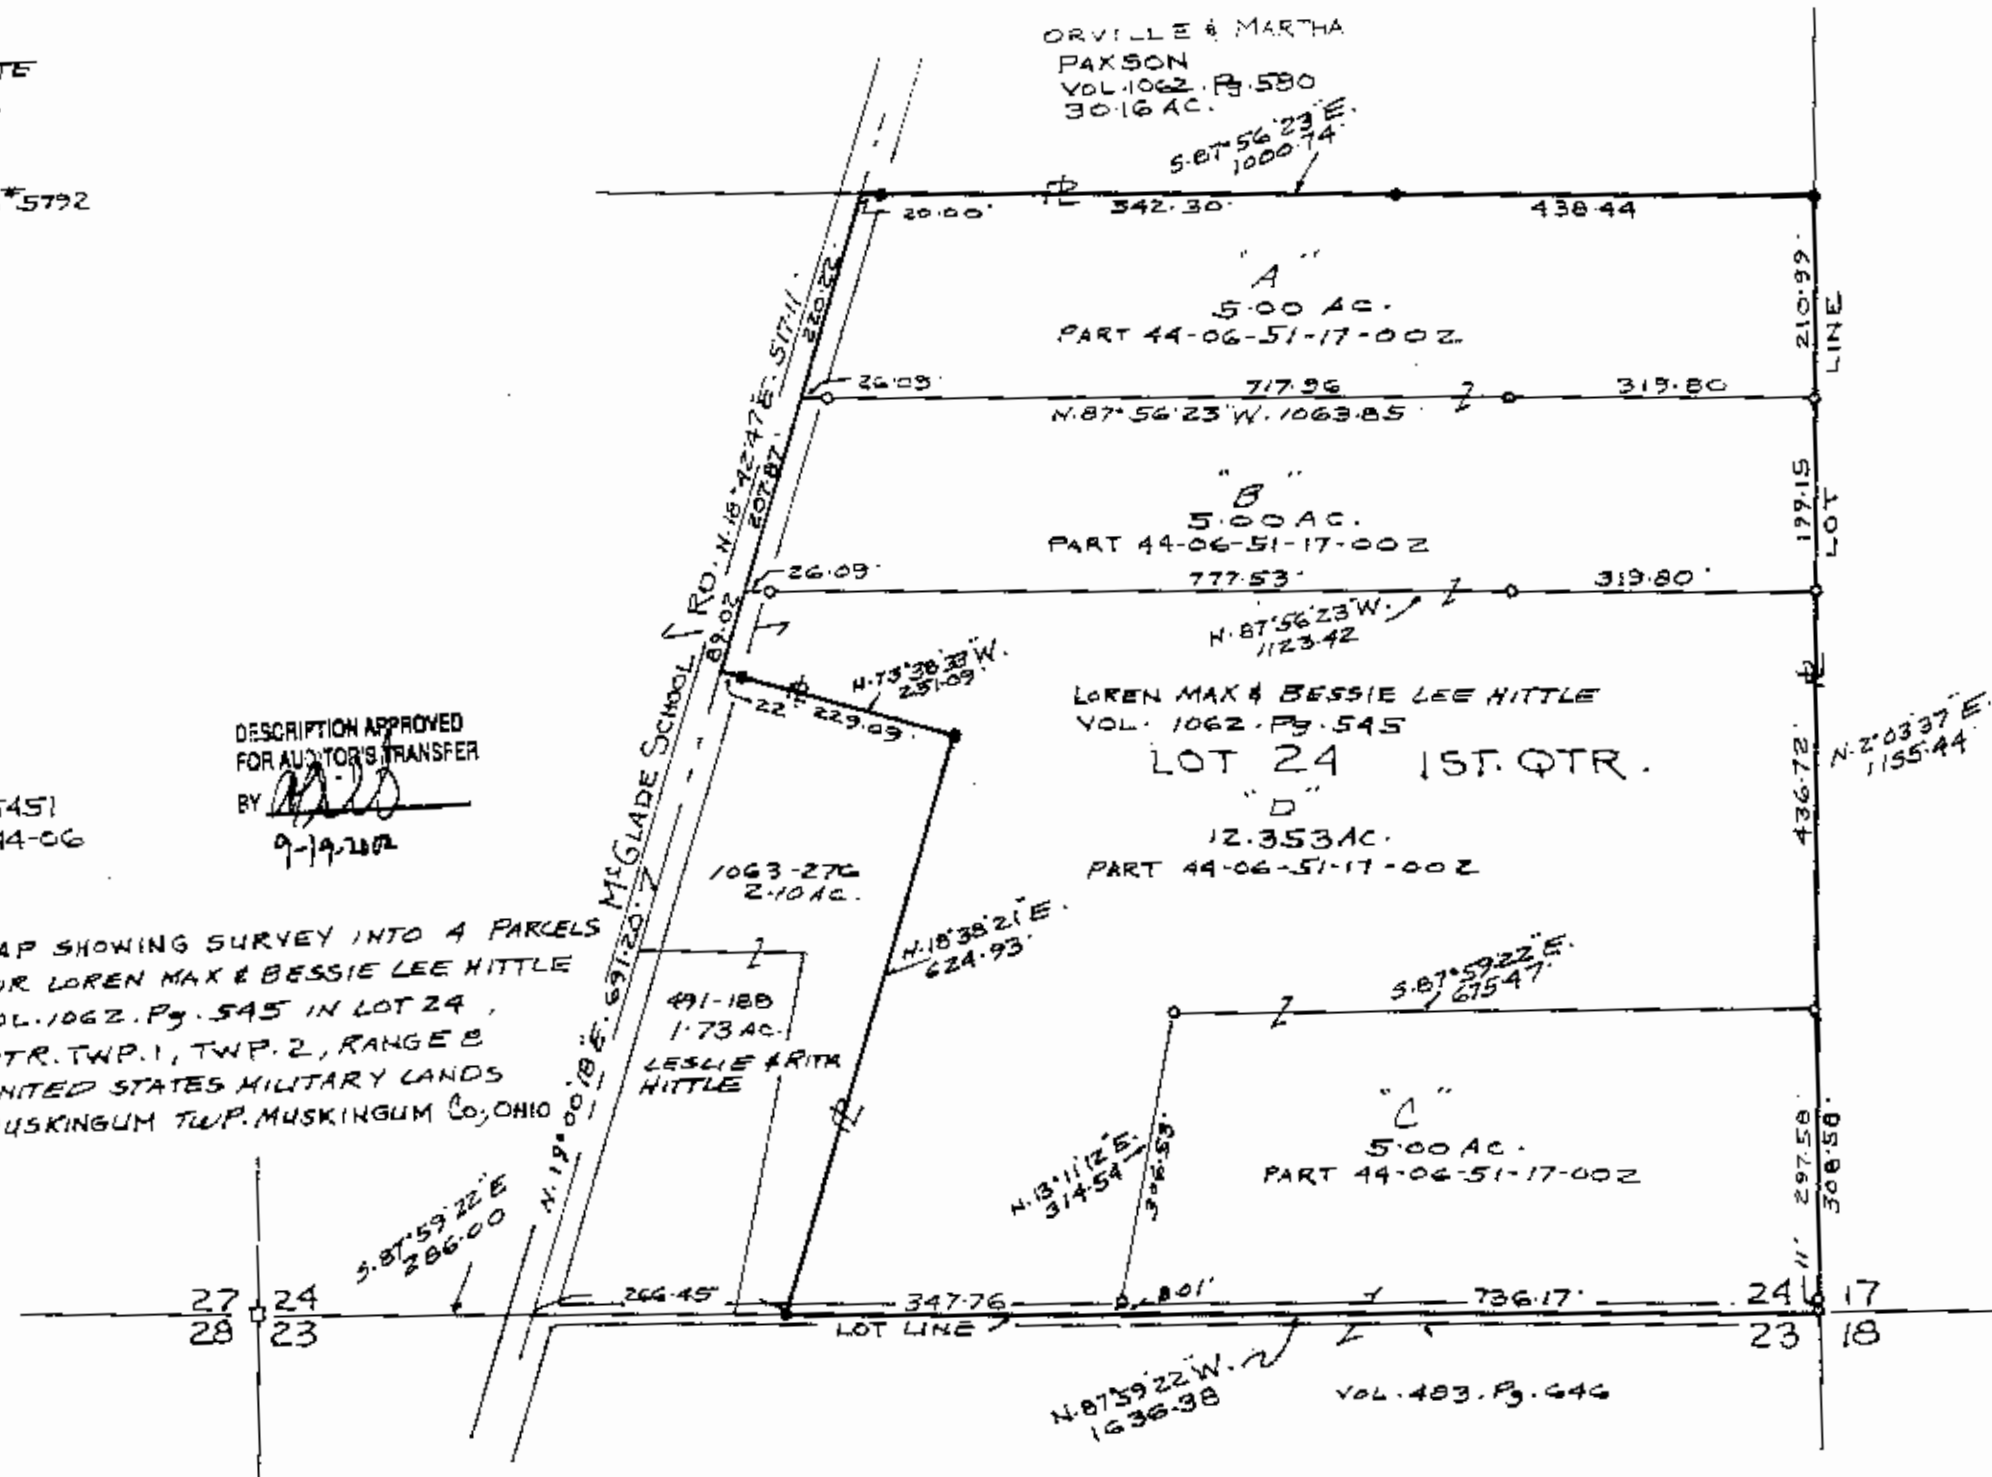 TE
#5792
ORVILLE & MARTHA
PAXSON
VOL.1062.Pg.590
30.16 AC.
S.87°56'23"E.
1000.74'
20.00'
542.30'
438.44
"A"
5.00 AC.
PART 44-06-51-17-002
210.99'
LINE
220.22'
26.09'
717.96
319.80
N.87°56'23"W. 1063.85'
"B"
5.00 AC.
PART 44-06-51-17-002
199.15
LOT
207.87'
26.09'
777.53'
319.80'
N.87°56'23"W.
1123.42
McGLADE SCHOOL RD. N.18°42'47"E. 517.11'
89.02
N.73°38'33"W.
251.09'
22'
229.09'
LOREN MAX & BESSIE LEE HITTLE
VOL. 1062.Pg.545
LOT 24 1ST. QTR.
"D"
12.353 AC.
PART 44-06-51-17-002
436.72'
N.2°03'37"E.
1155.44'
DESCRIPTION APPROVED
FOR AUDITOR'S TRANSFER
BY
9-19-2002
5451
44-06
1063-276
2.10 AC.
N.18°38'21"E.
624.93'
AP SHOWING SURVEY INTO 4 PARCELS
OR LOREN MAX & BESSIE LEE HITTLE
OL.1062.Pg.545 IN LOT 24,
TR. TWP.1, TWP.2, RANGE 8
NITED STATES MILITARY LANDS
USKINGUM TWP. MUSKINGUM Co, OHIO
491-188
1.73 AC.
LESLIE & RITA
HITTLE
N.19°00'18"E. 691.20'
S.87°59'22"E.
675.47'
"C"
5.00 AC.
PART 44-06-51-17-002
N.13°11'12"E.
314.54
306.53'
297.58'
308.58'
11'
S.87°59'22"E
286.00
27 24
28 23
266.45'
347.76
8.01'
736.17'
24 17
23 18
LOT LINE
N.87°59'22"W.
1636.38
VOL.483.Pg.646